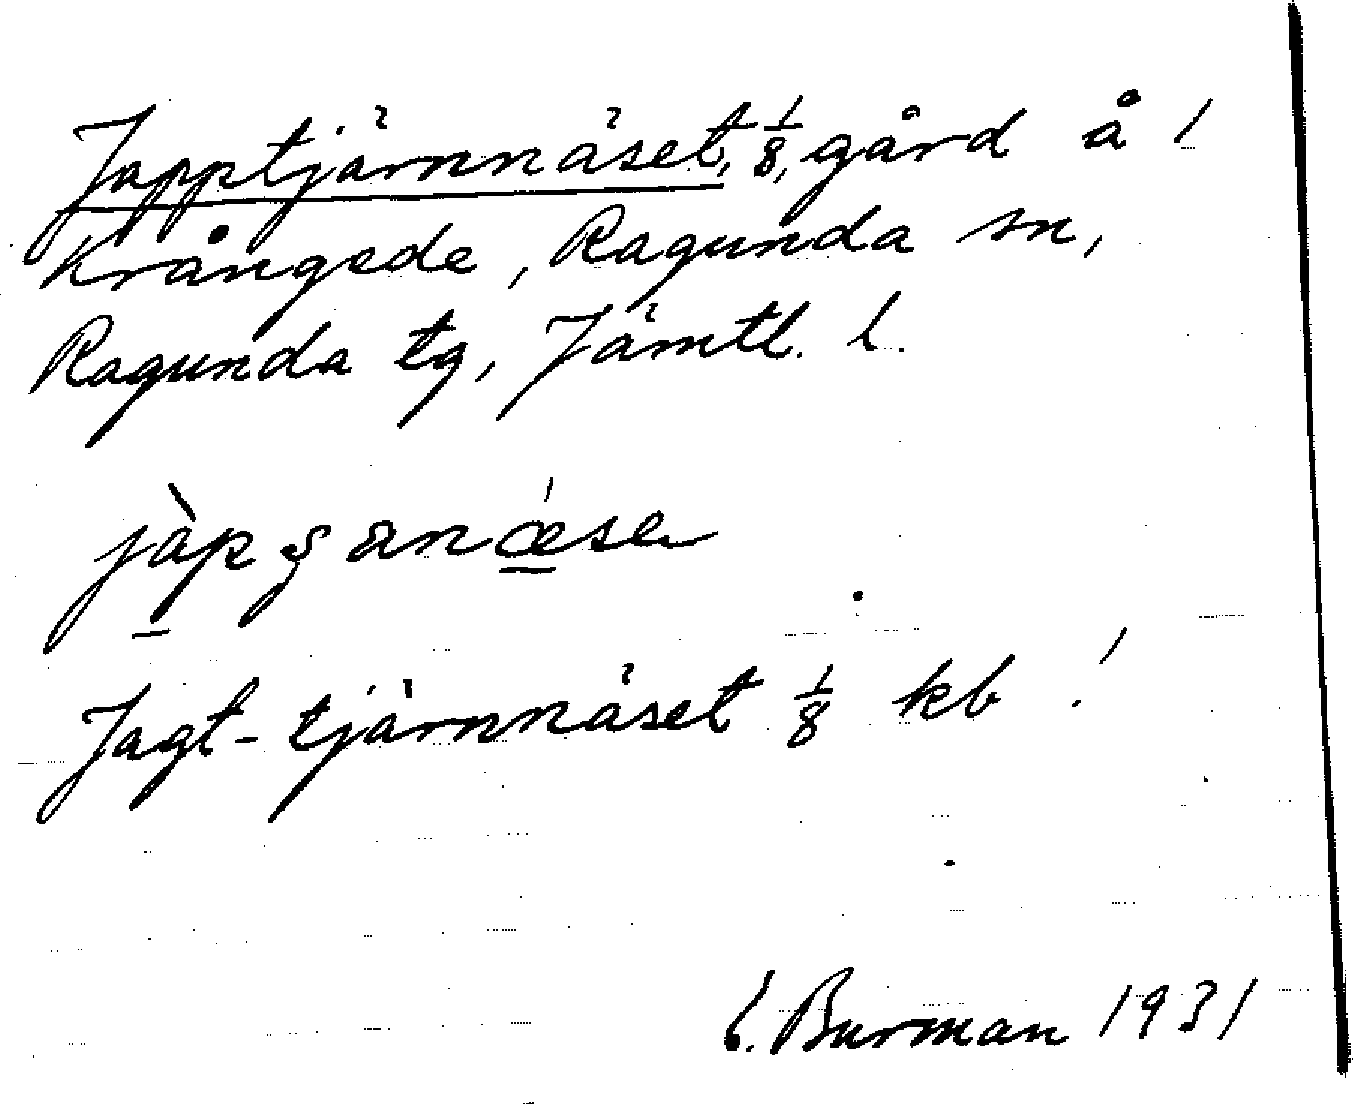 Japptjärnnäset, 1/8, gård å 1
Krångede, Ragunda sn,
Ragunda tg, Jämtl. l.
Jagt-tjärnnäset 1/8 kb 1
E. Burman 1931